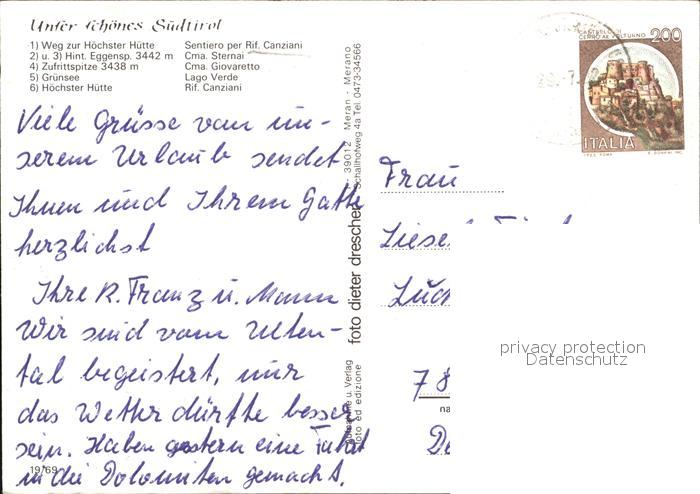 Unser schönes Südtirol
1) Weg zur Höchster Hütte Sentiero per Rif. Canziani
2) u. 3) Hint. Eggensp. 3442 m Cma. Sternai
4) Zufrittspitze 3438 m Cma. Gioveretto
5) Grünsee Lago Verde
6) Höchster Hütte Rif. Canziani
Viele Grüsse von un-
serem Urlaub sendet
Ihnen und Ihrem Gatte
herzlichst
Ihre R. Franz u. Mann
Wir sind vom Ulten-
tal begeistert, nur
das Wetter dürfte besser
sein. Haben gestern eine Fahrt
in die Dolomiten gemacht.
19769
foto dieter drescher
39012 Meran - Merano
Schallhofweg 4a Tel. 0473-34566
u. Verlag
foto ed edizione
CASTELLO DI
CERRO AL VOLTURNO
200
ITALIA
Frau
Liese
78
privacy protection
Datenschutz